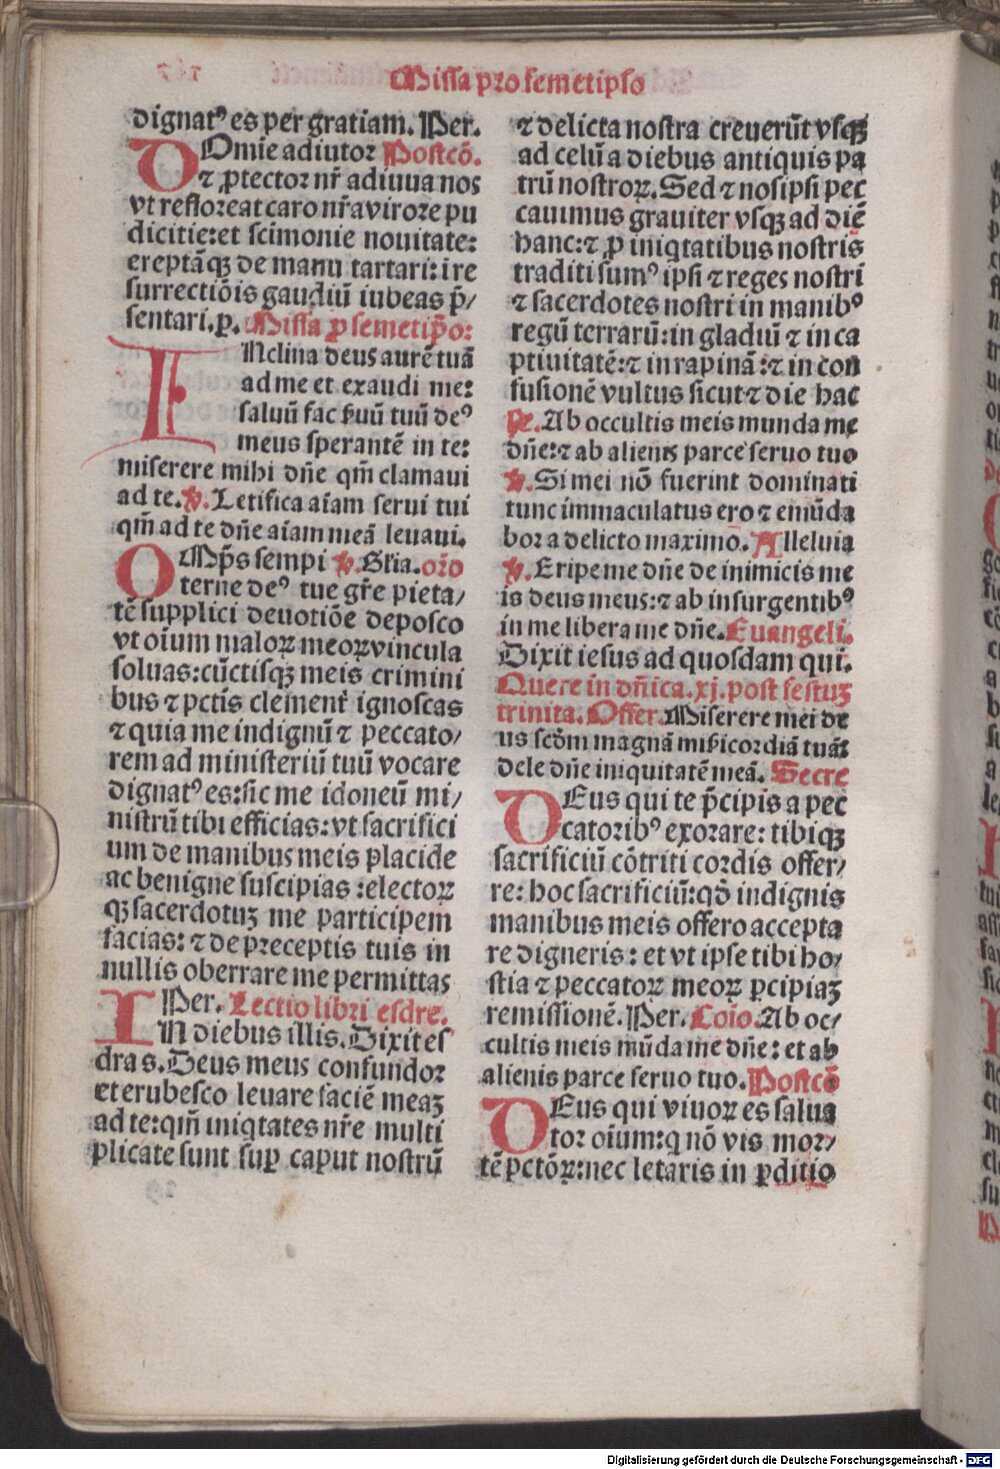 Missa pro semetipso
dignatꝰ es per gratiam. Per.
DOmie adiutor Postcō.
⁊ ꝓtector nr̄ adiuua nos
vt refloreat caro nr̄a virore pu
dicitie: et scīmonie nouitate:
ereptāqꝫ de manu tartari: i re
surrectiōis gaudiū iubeas p̄/
sentari. ꝑ. Missa ꝓ semetip̄o:
INclina deus aurē tuā
ad me et exaudi me:
saluū fac ẜuū tuū deꝰ
meus sperantē in te:
miserere mihi dn̄e qm̄ clamaui
ad te. ℣. Letifica aīam serui tui
qm̄ ad te dn̄e aīam meā leuaui.
OMp̄s sempi ℣. Gl̄ia. oro
terne deꝰ tue gr̄e pieta/
tē supplici deuotiōe deposco
vt oīum maloꝝ meoꝝ vincula
soluas: cūctisqꝫ meis crimini
bus ⁊ pctīs clement̄ ignoscas
⁊ quia me indignū ⁊ peccato/
rem ad ministeriū tuū vocare
dignatꝰ es: sic me idoneū mi/
nistrū tibi efficias: vt sacrifici
um de manibus meis placide
ac benigne suscipias: electoꝝ
qꝫ sacerdotuꝫ me participem
facias: ⁊ de preceptis tuis in
nullis oberrare me permittas
Per. Lectio libri esdre.
IN diebus illis. Dixit es
dras. Deus meus confundor
et erubesco leuare faciē meaꝫ
ad te: qm̄ iniqtates nr̄e multi
plicate sunt suꝑ caput nostrū
⁊ delicta nostra creuerūt vsqꝫ
ad celū a diebus antiquis pa
trū nostroꝝ. Sed ⁊ nosipsi pec
cauimus grauiter vsqꝫ ad diē
hanc: ⁊ ꝓ iniqtatibus nostris
traditi sumꝰ ipsi ⁊ reges nostri
⁊ sacerdotes nostri in manibꝰ
regū terrarū: in gladiū ⁊ in ca
ptiuitatē: ⁊ in rapinā: ⁊ in con
fusionē vultus sicut ⁊ die hac
℟. Ab occultis meis munda me
dn̄e: ⁊ ab alienis parce seruo tuo
℣. Si mei nō fuerint dominati
tunc immaculatus ero ⁊ emūda
bor a delicto maximo. Alleluia
℣. Eripe me dn̄e de inimicis me
is deus meus: ⁊ ab insurgentibꝰ
in me libera me dn̄e. Euangeli.
Dixit iesus ad quosdam qui.
Quere in dn̄ica. xj. post festuꝫ
trinita. Offer. Miserere mei de
us scd̄m magnā mīẜicordiā tuā:
dele dn̄e iniquitatē meā. Secre
DEus qui te p̄cipis a pec
catoribꝰ exorare: tibiqꝫ
sacrificiū cōtriti cordis offer/
re: hoc sacrificiū: qd̄ indignis
manibus meis offero accepta
re digneris: et vt ipse tibi ho/
stia ⁊ peccatoꝝ meoꝝ ꝑcipiaꝫ
remissionē. Per. Coīo. Ab oc/
cultis meis mūda me dn̄e: et ab
alienis parce seruo tuo. Postcō
DEus qui viuoꝝ es salua
tor oīum: q nō vis mor/
tē pctōꝝ: nec letaris in ꝑditio
Digitalisierung gefördert durch die Deutsche Forschungsgemeinschaft - DFG